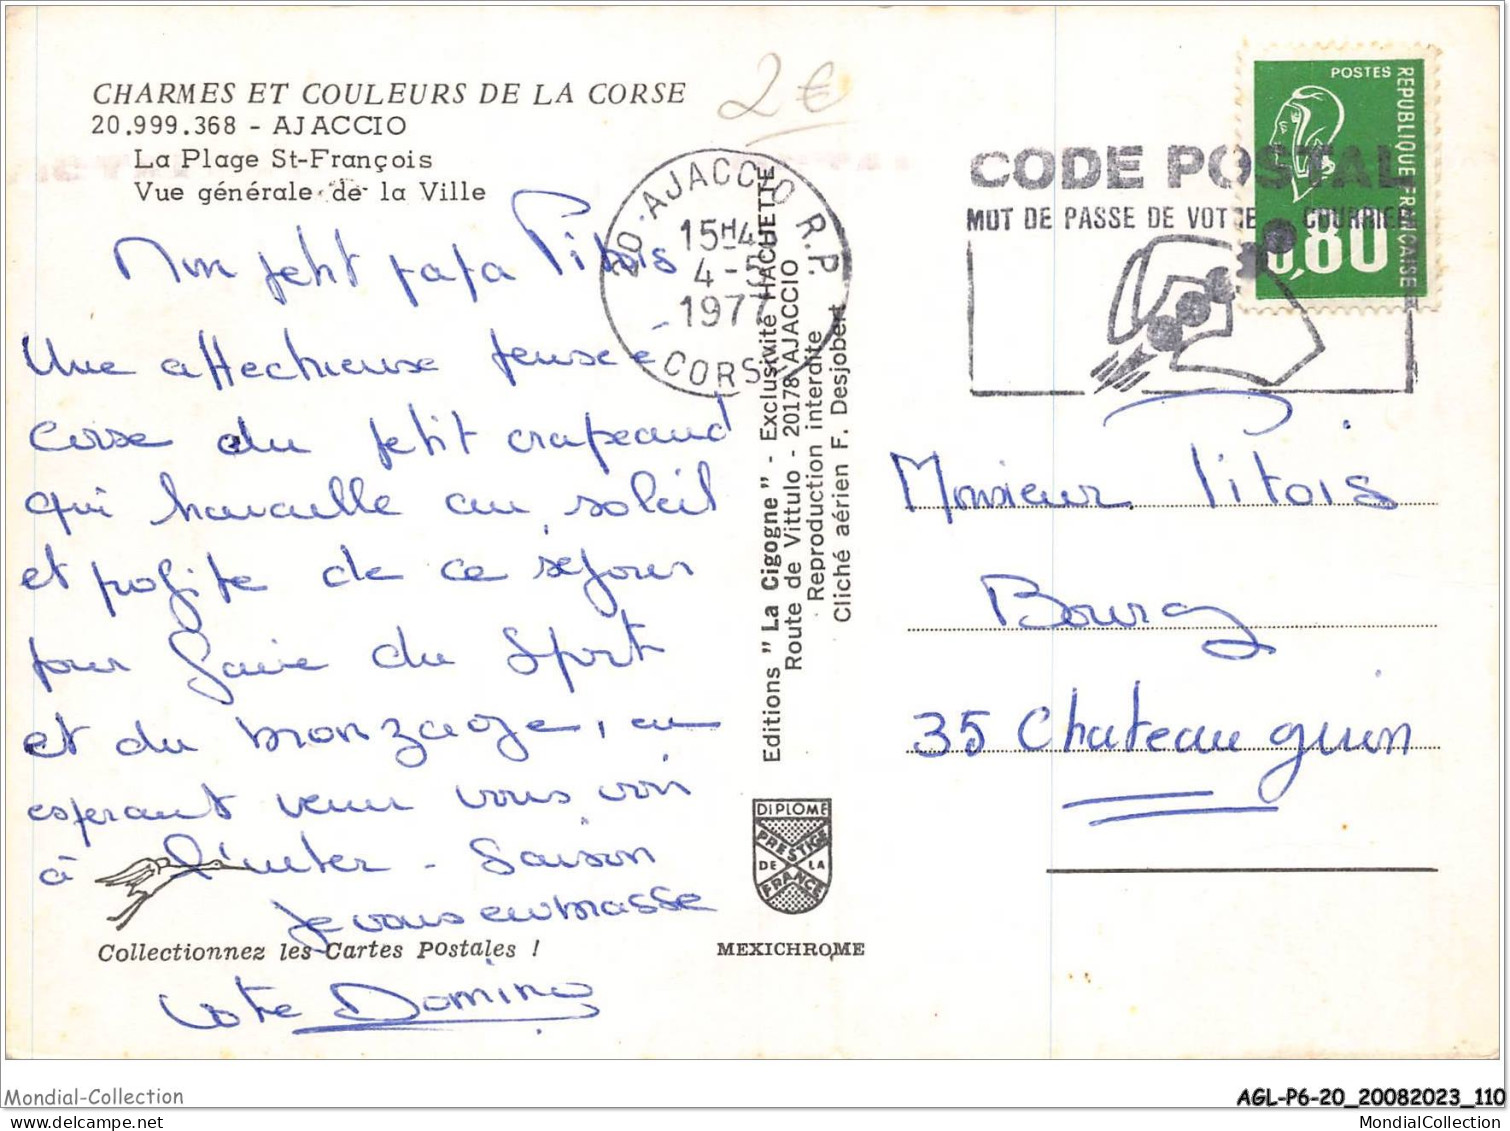 CHARMES ET COULEURS DE LA CORSE
20.999.368 - AJACCIO
La Plage St-François
Vue générale de la Ville
2€
20 AJACCIO R.P.
15H4
4 - 5
1977
CORSE
CODE POSTAL
MOT DE PASSE DE VOTRE COURRIER
POSTES
REPUBLIQUE FRANÇAISE
0,80
Mon petit papa Pitois
Une affectueuse pensée
Corse du petit crapeaud
qui travaille au soleil
et profite de ce séjour
pour faire du Sport
et du bronzage, en
esperant venir vous voir
à l'inter - Saison
Je vous embrasse
Votre Domino
Editions " La Cigogne " - Exclusivité HACHETTE
Route de Vittulo - 20178 AJACCIO
Reproduction interdite
Cliché aérien F. Desjobert
Monsieur Pitois
Bourg
35 Chateau guin
DIPLOME
PRESTIGE
DE LA
FRANCE
Collectionnez les Cartes Postales !
MEXICHROME
Mondial-Collection
AGL-P6-20_20082023_110
MondialCollection.com